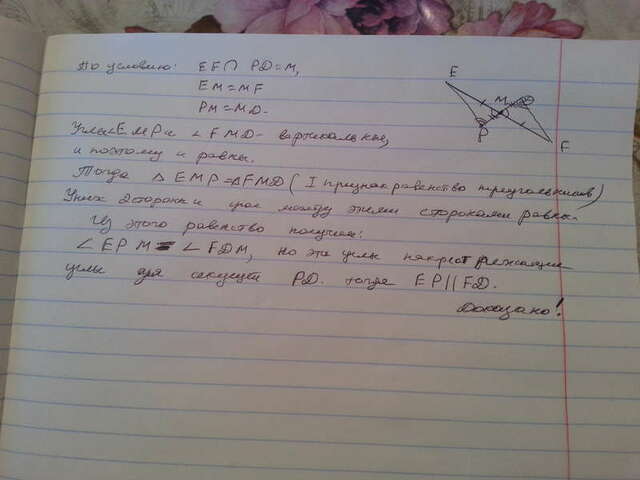 По условию: EF∩ PD=M,
EM=MF
PM=MD.
Углы EMP и ∠ FMD- вертикальные,
и поэтому и равны.
Тогда △ EMP=△FMD( I признак равенство треугольников)
У них 2 сторона и угол между этими сторонами равны.
Из этого равенство получаем:
∠ EPM = ∠ FDM, но эти углы накрест лежащие
углы для секущей PD. тогда EP||FD.
Доказано!
E
M
D
P
F